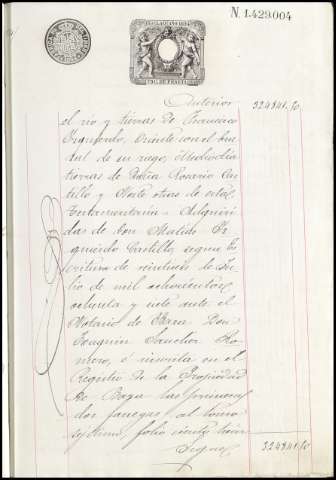 N. 1.429.004
Anterior 324841.50
el rio y tierras de Francisco
Izquierdo, Oriente con el bra-
zal de su riego, Mediodia
tierras de Doña Rosario Cas-
tillo y Norte otras de esta
Testamentaria. Adquiri-
das de Don Matias Iz-
quierdo Castillo, segun es-
critura de veintiseis de Ju-
lio de mil ochocientos
ochenta y siete ante el
Notario de Don
Joaquin Sanchez Ro-
mero, é inscrita en el
Registro de la Propiedad
de Baza las primeras
dos fanegas, al tomo
septimo, folio ciento trein-
Sigue, 324841.50